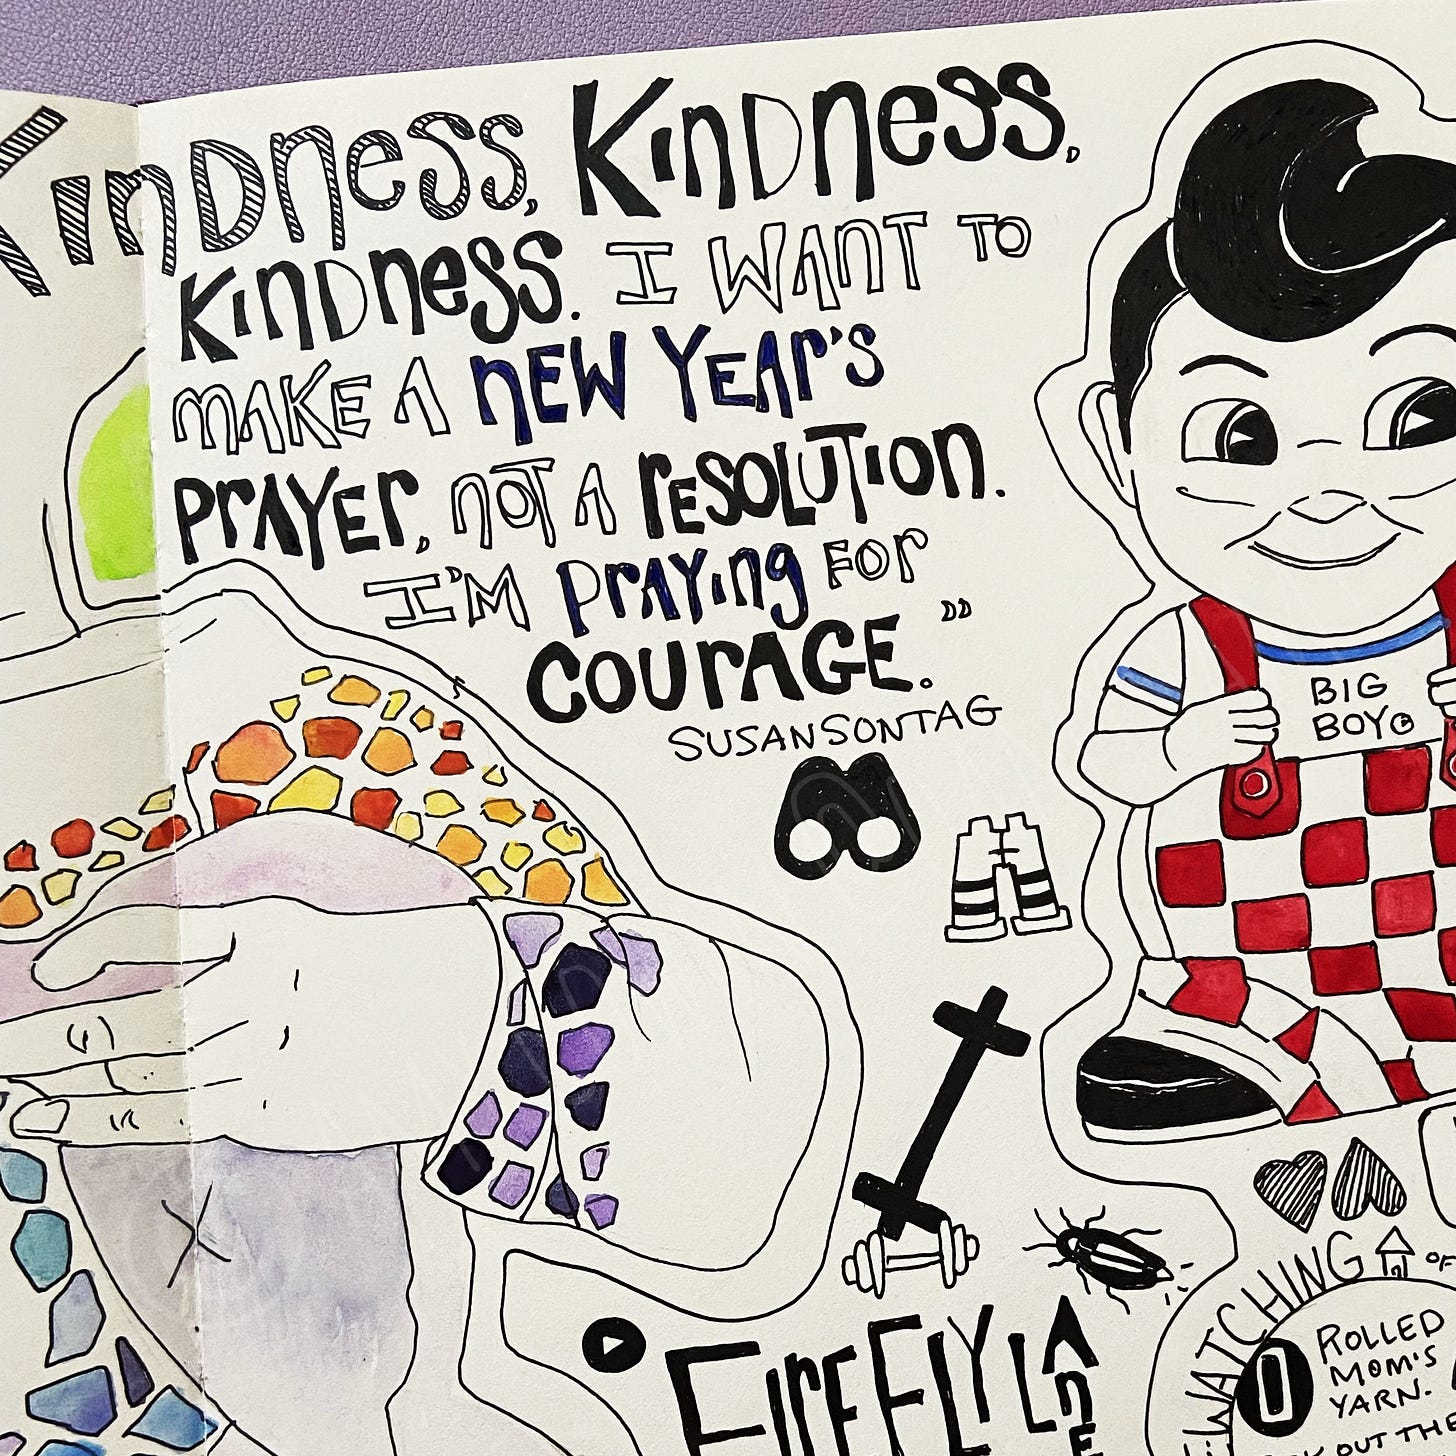 Kindness, Kindness,
Kindness. I WANT TO
MAKE A NEW YEAR'S
PRAYER, NOT A RESOLUTION.
I'M PRAYING FOR
COURAGE."
SUSAN SONTAG
BIG
BOY®
FIREFLY LANE
WATCHING
OF
ROLLED
MOM'S
YARN.
OUT THE